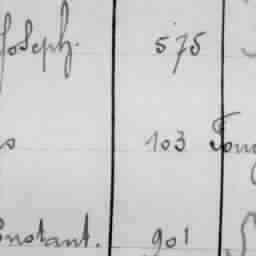 Joseph. 575
103
Constant. 901